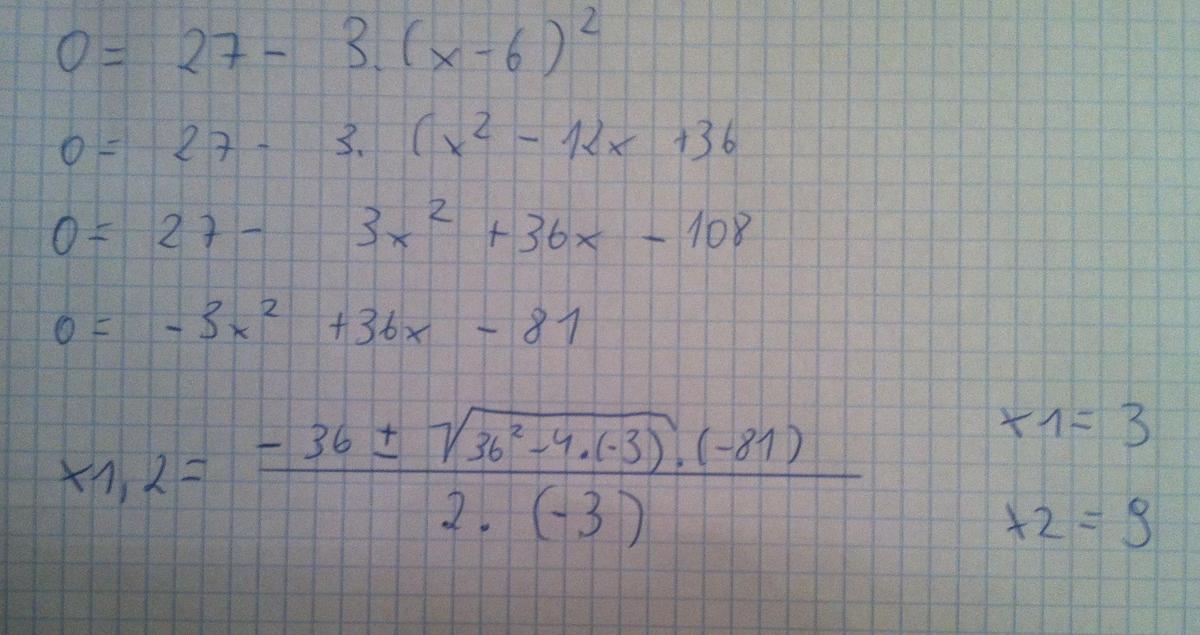 0 = 27 - 3.(x-6)²
0 = 27 - 3. (x² - 12x +36
0 = 27 - 3x² +36x - 108
0 = -3x² +36x - 81
x1,2 = (-36 ± √(36²-4.(-3)).(-81)) / 2.(-3)
x1 = 3
x2 = 9